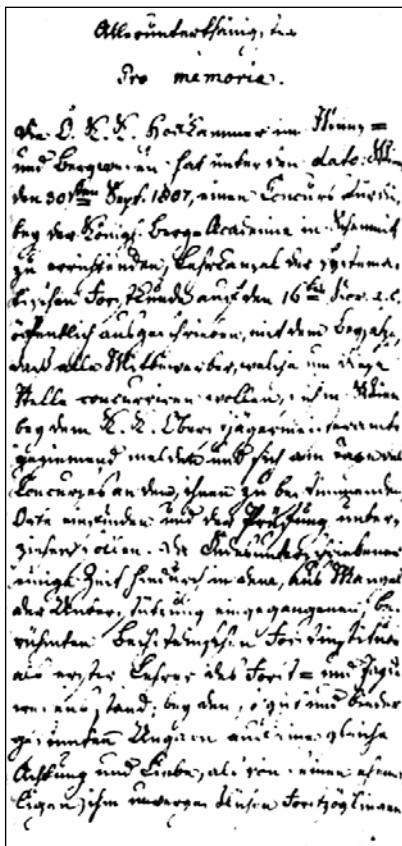 Allerunterthänigstes
Pro memoria.
Die K. K. Hofkammer im Münz=
und Bergwesen hat unter dem dato Wien
den 30ten Sept. 1807, einen Concurs für die,
bey der Königl. Berg=Academie in Schemnitz
zu errichtenden, Lehrkanzel der systema=
tischen Forstkunde auf den 16ten Nov. a. c.
öffentlich ausgeschrieben, mit dem Beysatze,
daß alle Mittbewerber, welche um diese
Stelle concurriren wollen, sich in Wien
bey dem K. K. Oberstjägermeisteramte
geziemend melden und sich am Tage des
Concurses an dem, ihnen zu bestimmenden
Orte einfinden und der Prüfung unter=
ziehen sollen. Der Endesunterschriebene
einige Zeit hindurch in dem, aus Mangel
der Unterstützung eingegangenen, be=
rühmten Bechsteinschen Forstinstitute
als erster Lehrer des Forst= und Jagd
wesens stand; bey den, und
gesinnten Ungarn auf eine gleiche
Achtung und Liebe, als von seinen ehema
ligen, ihm unvergesslichen Forstzöglingen